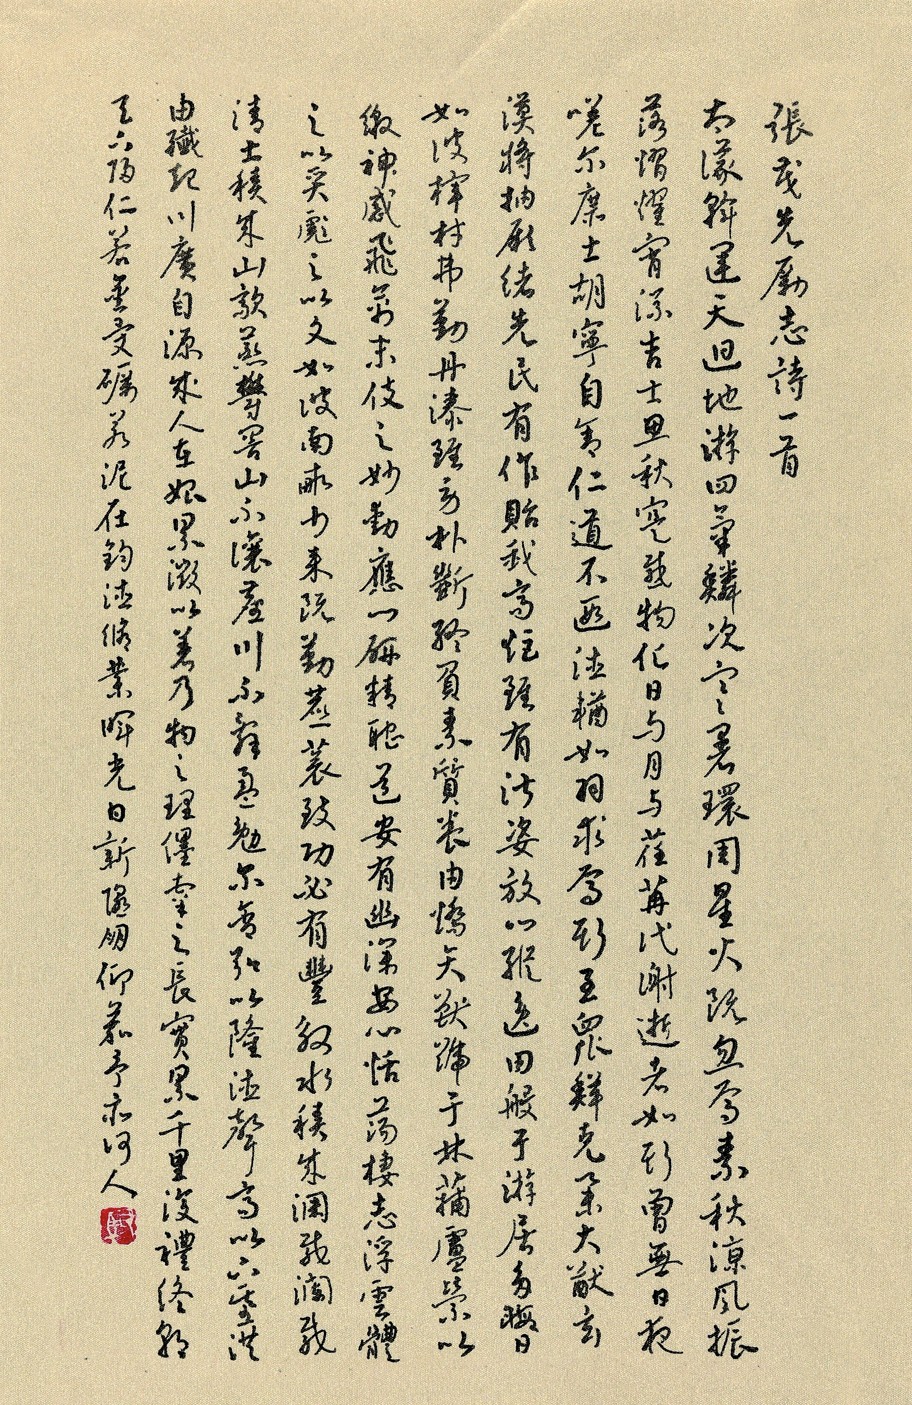 張茂先勵志詩一首
太儀斡運天迴地游四氣鱗次寒暑環周星火既忽焉素秋涼風振
落熠燿宵流吉士思秋寔感物化日与月与荏苒代謝逝者如斯曾無日夜
嗟尔庶士胡寧自舍仁道不遐德輶如羽求焉斯至眾鮮克舉大猷玄
漠將抽厥緒先民有作貽我高矩雖有淑姿放心縱逸田般于游居多暇日
如彼梓材弗勤丹漆雖勞朴斲終負素質養由矯矢獸號于林蒲盧縈以
繳神感飛禽末伎之妙動應心研精耽道安有幽深安心恬蕩棲志浮雲體
之以質彪之以文如彼南畝力耒既勤藨蓘致功必有豐殷水積成淵載瀾載
清土積成山歊蒸鬱冥山不讓塵川不辭盈勉尔含弘以隆德聲高以下基洪
由纖起川廣自源成人在始累微以著乃物之理纆牽之長實累千里復禮終朝
天下歸仁若金受礪若泥在鈞德修業暉光日新隰朋仰慕予亦何人